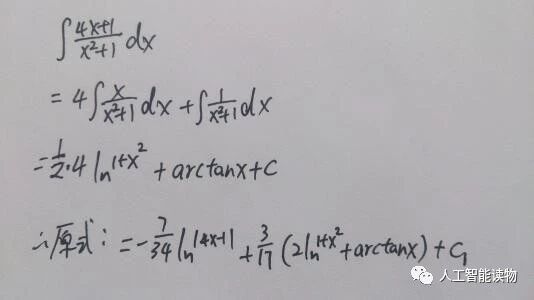 ∫ (4x+1)/(x²+1) dx
= 4∫ x/(x²+1) dx + ∫ 1/(x²+1) dx
= 1/2·4 ln^{1+x²} + arctanx + C
∴原式: = -7/34 ln^{|4x-1|} + 3/17 (2ln^{1+x²} + arctanx) + C₁
人工智能读物